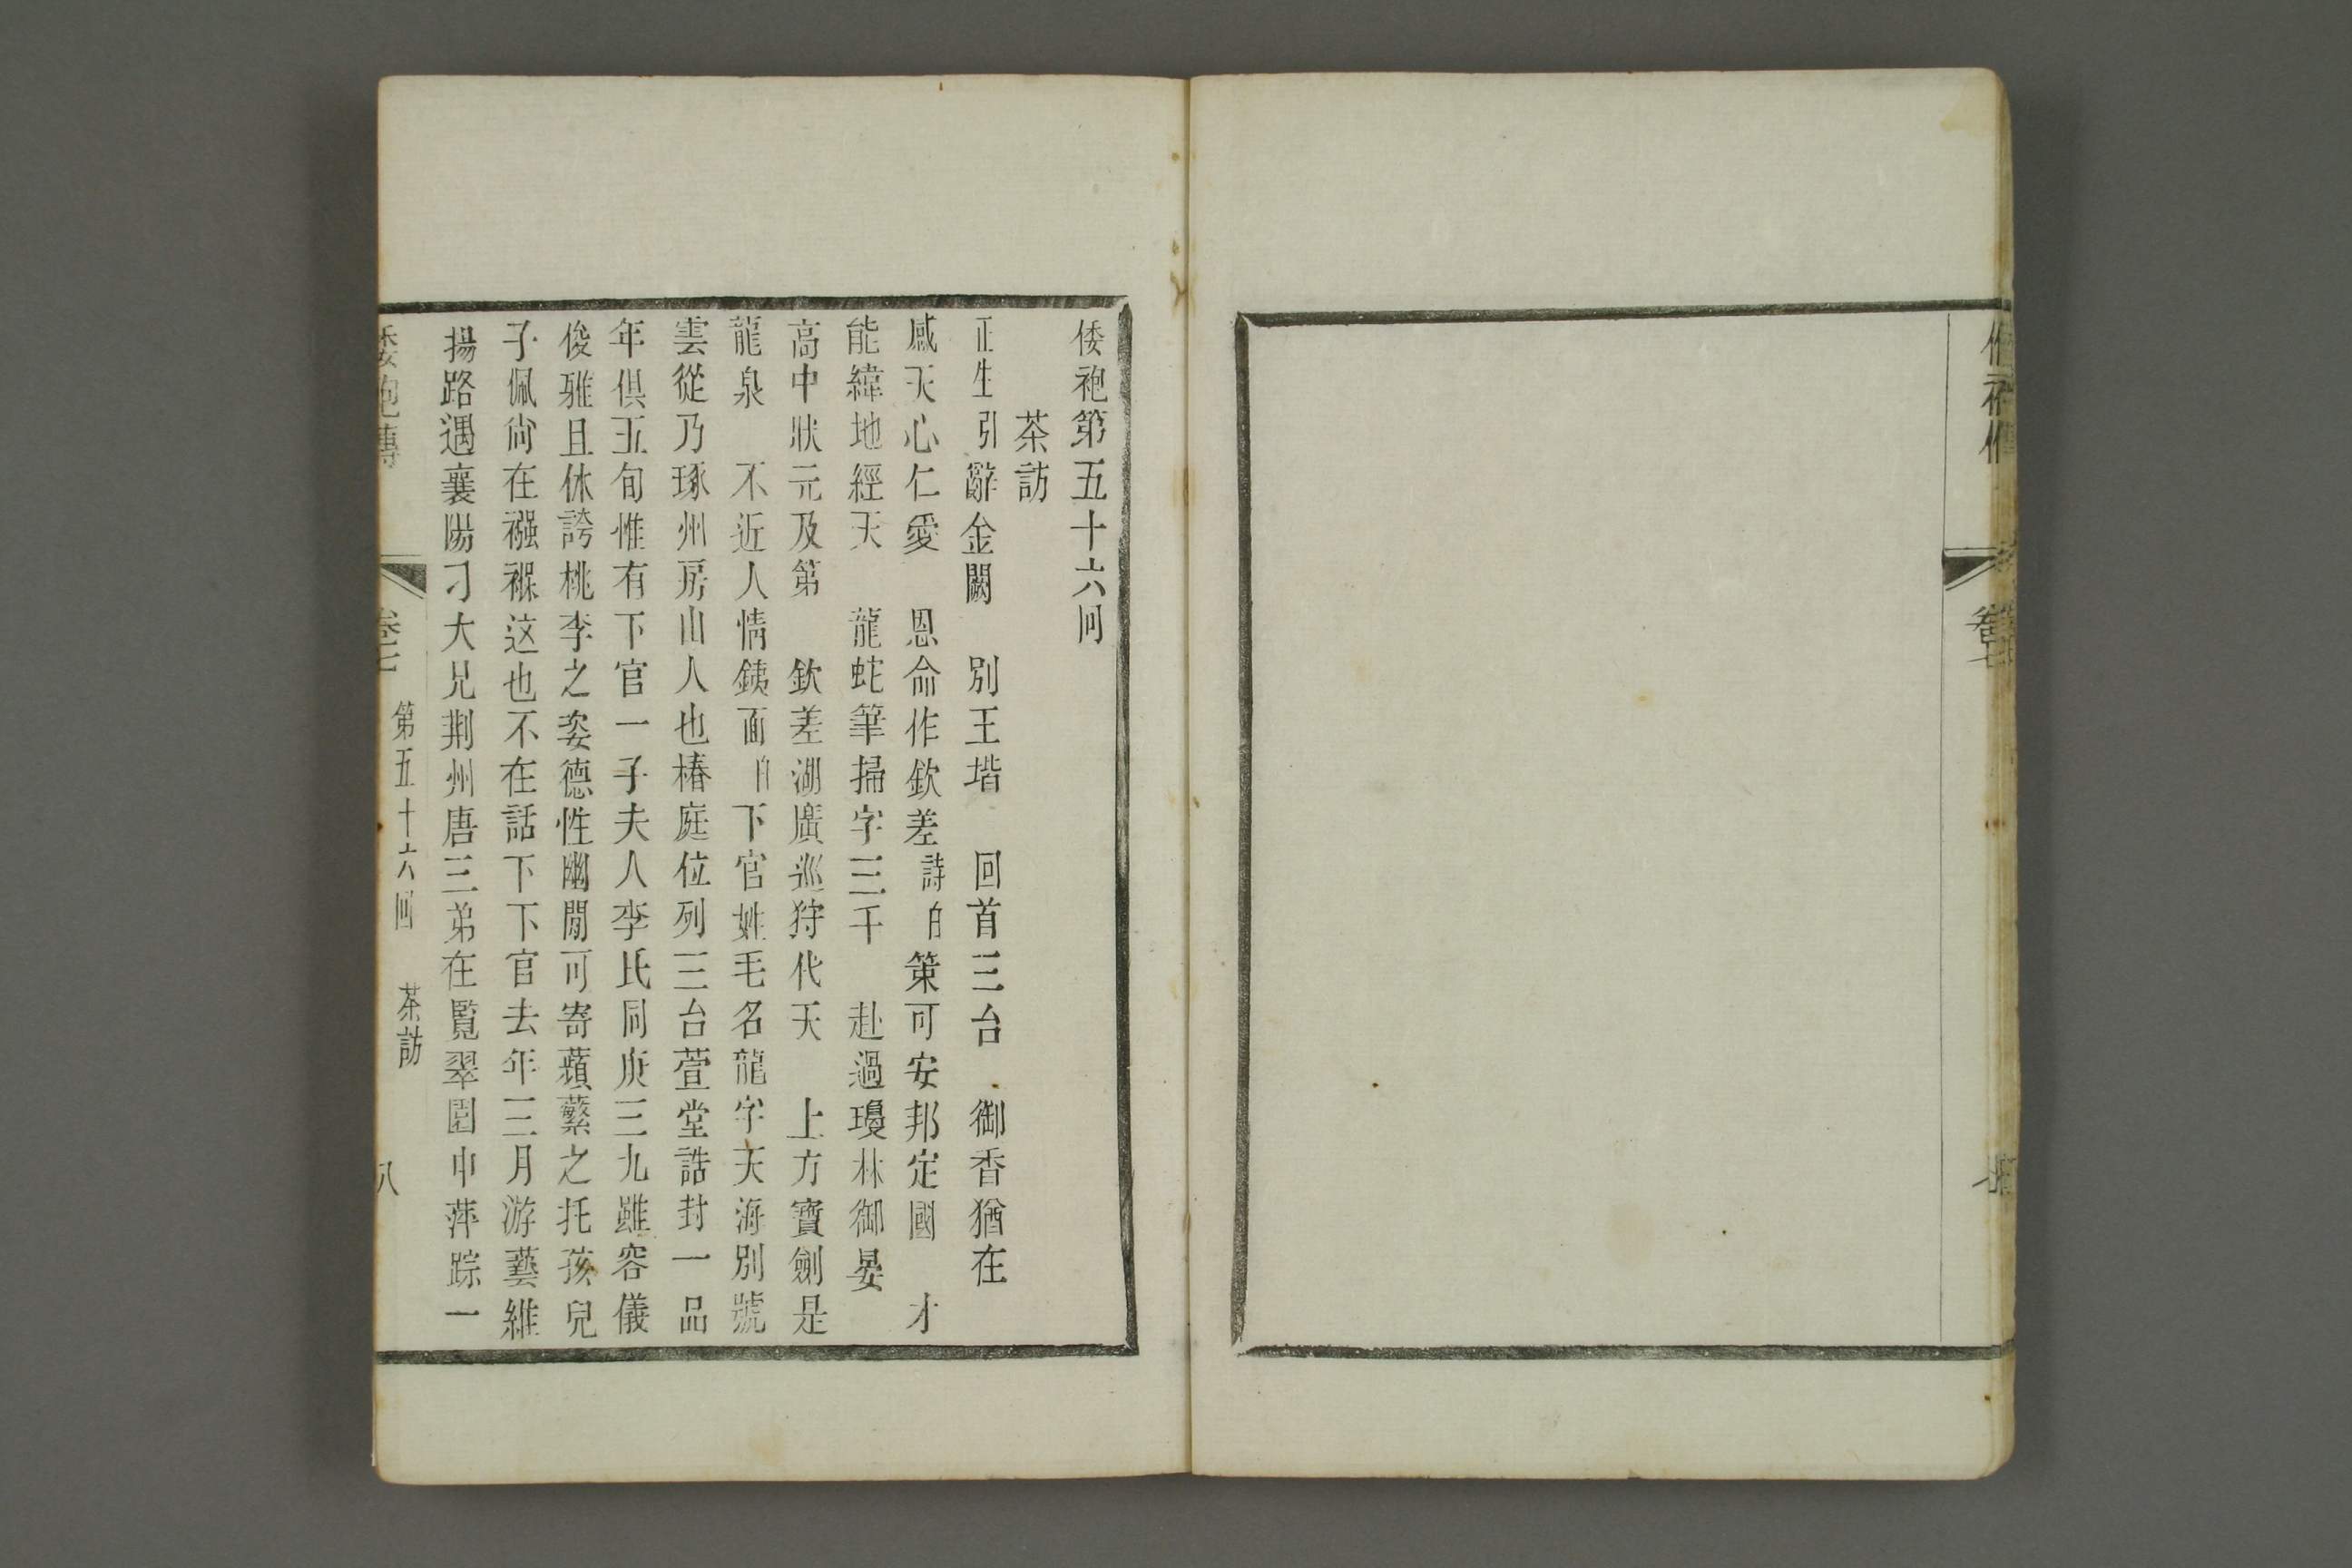 倭袍第五十六回
茶訪
正生引辭金闕 別王堦 回首三台 御香猶在
感天心仁愛 恩命作欽差 詩白策可安邦定國 才
能緯地經天 龍蛇筆掃字三千 赴過瓊林御晏
高中狀元及第 欽差湖廣巡狩代天 上方寶劍是
龍泉 不近人情銕面 白下官姓毛名龍字天海別號
雲從乃琢州房山人也椿庭位列三台萱堂誥封一品
年俱五旬惟有下官一子夫人李氏同庚三九雖容儀
俊雅且休誇桃李之姿德性幽閒可寄蘋蘩之托孩兒
子佩尙在襁褓这也不在話下下官去年三月游藝維
揚路遇襄陽刁大兄荆州唐三弟在覧翠園中萍踪一
倭袍傳 卷七 第五十六回 茶訪 八